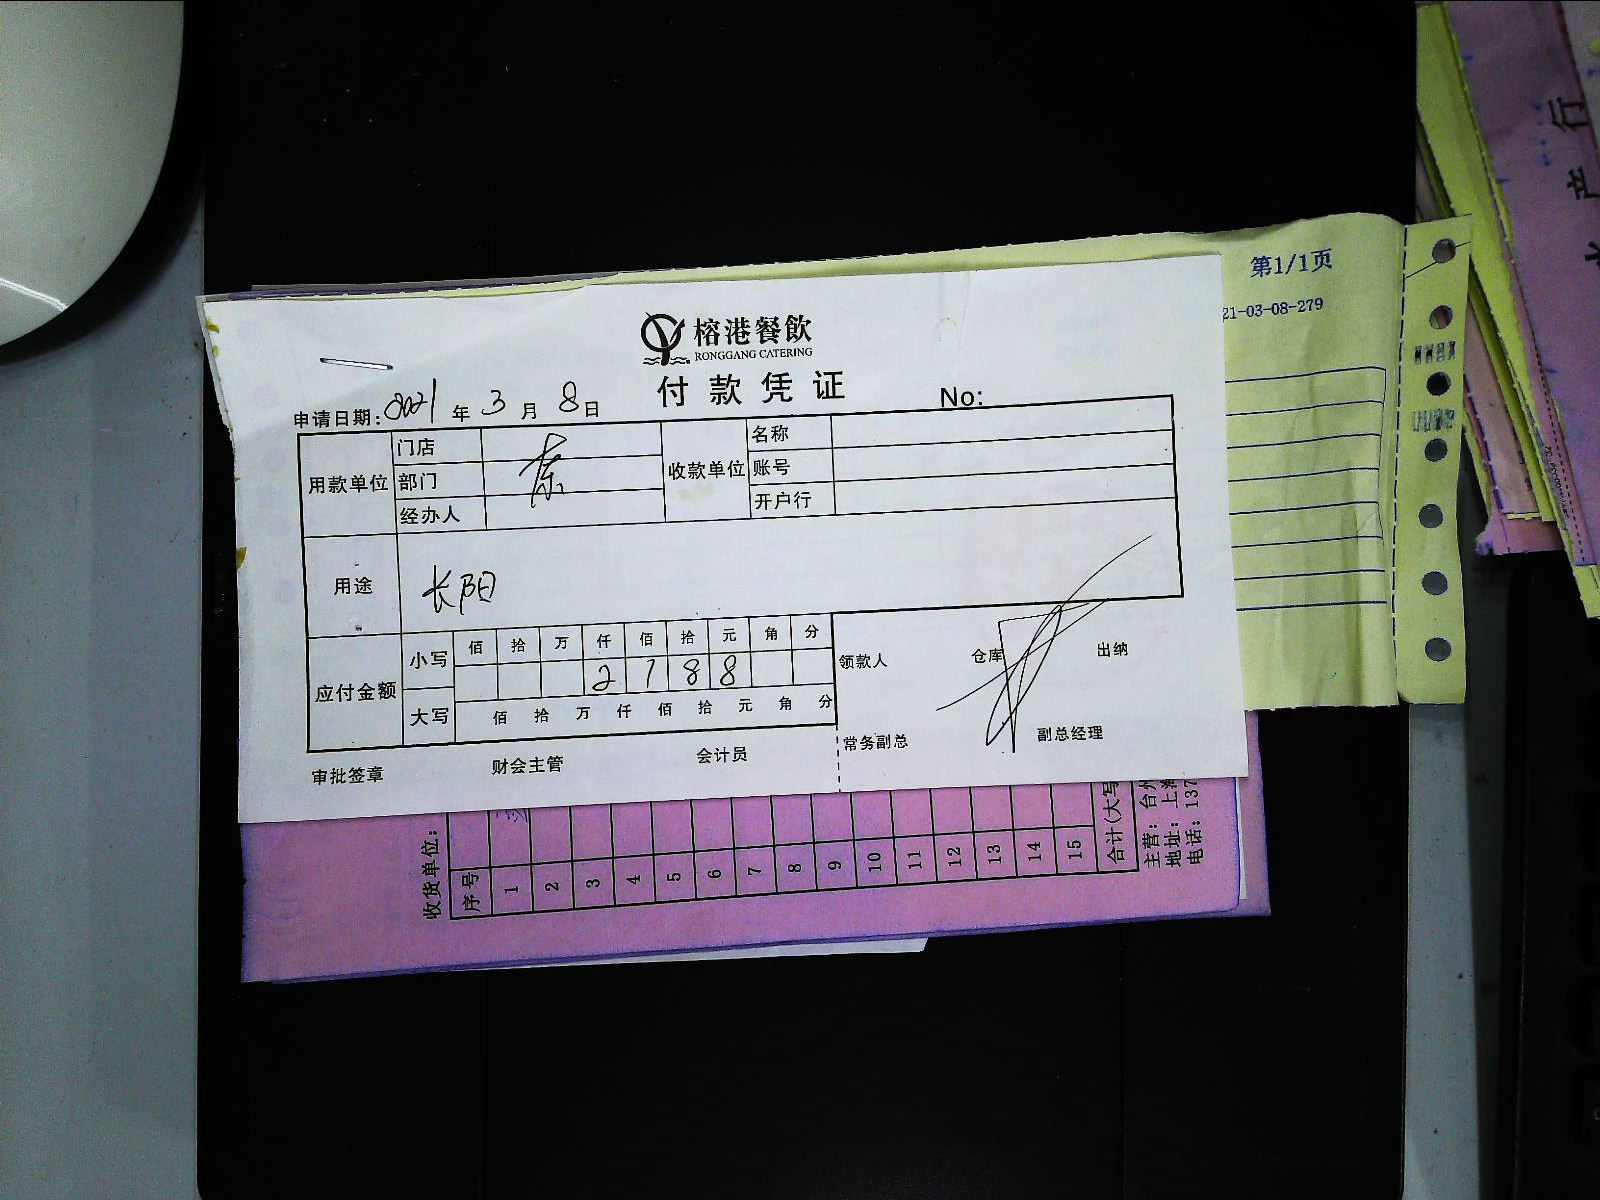 第1/1页
21-03-08-279
榕港餐飲
RONGGANG CATERING
付款凭证
No:
申请日期: 2021 年 3 月 8 日
用款单位 门店 收款单位 名称
部门 账号
经办人 开户行
用途 长阳
应付金额 小写 佰 拾 万 仟 佰 拾 元 角 分
2 1 8 8
大写 佰 拾 万 仟 佰 拾 元 角 分
领款人 仓库 出纳
常务副总 副总经理
审批签章 财会主管 会计员
收货单位:
序号 1 2 3 4 5 6 7 8 9 10 11 12 13 14 15
合计(大写
主营: 台州
地址: 上海
电话: 137
产 行